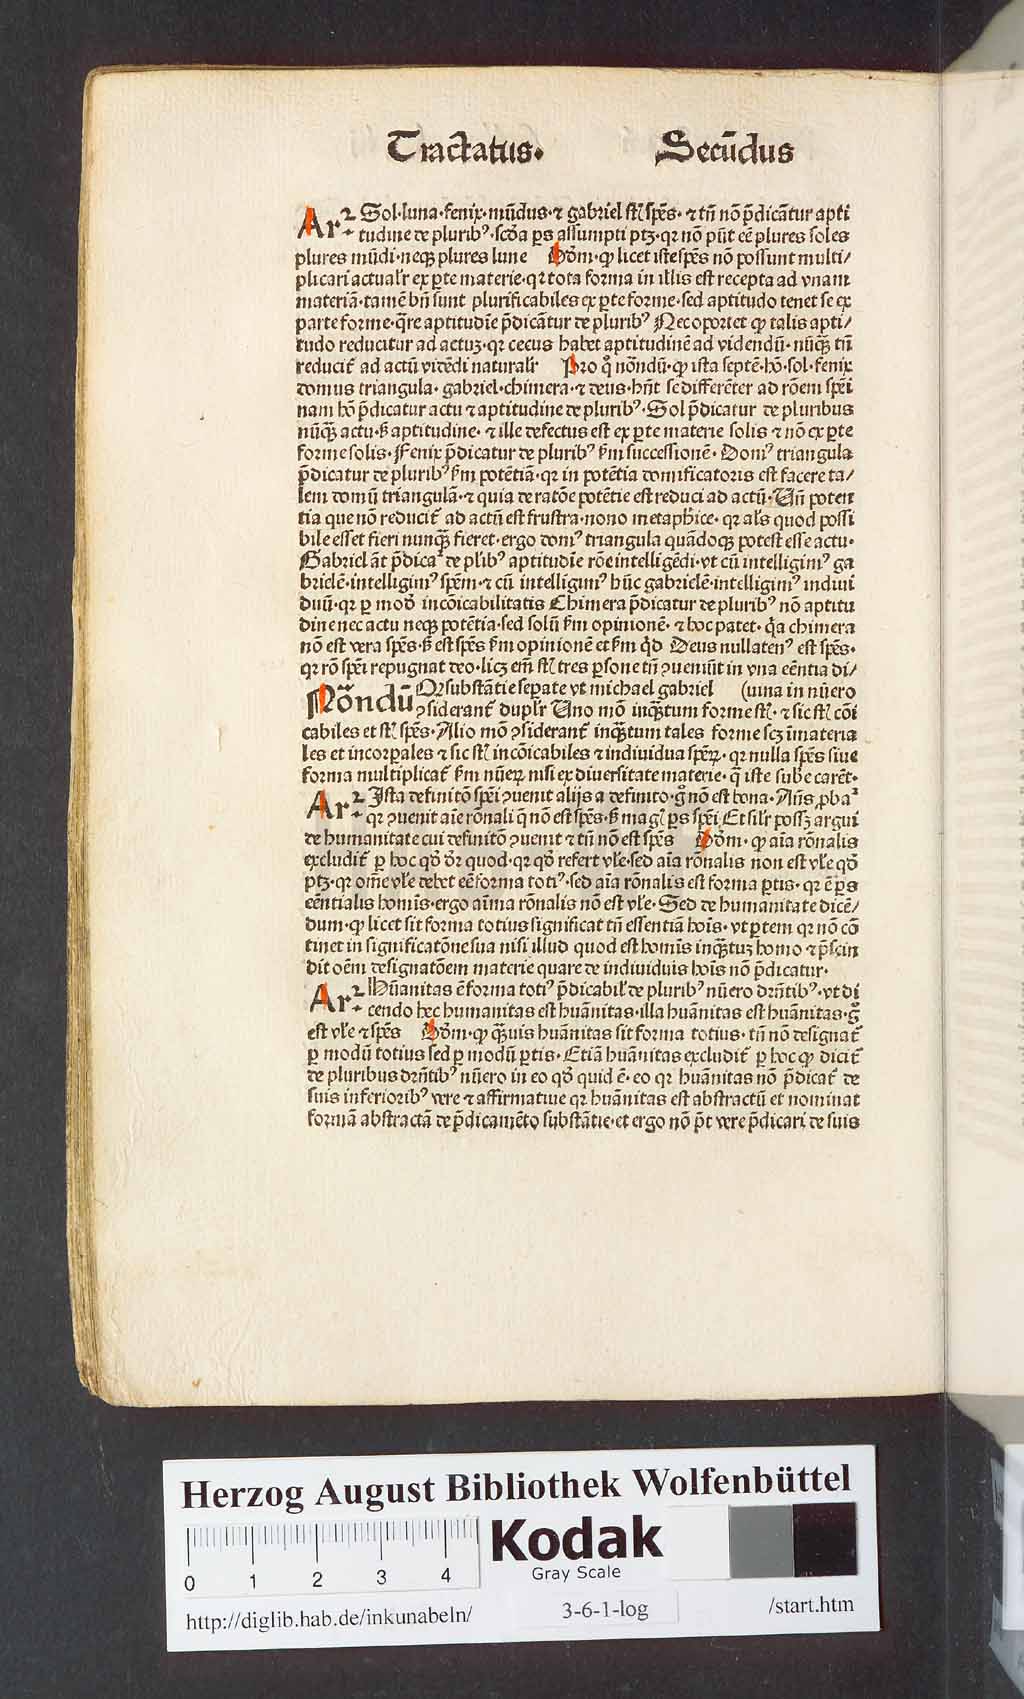 Tractatus. Secūdus
Arꝛ· Sol·luna·fenix·mūdus·⁊ gabriel sūt spēs·⁊ tn̄ nō p̄dicātur apti
tudine de pluribꝰ·scd̓a ps assumpti ptꝫ·qꝛ nō pn̄t eē plures soles
plures mūdi·neqꝫ plures lune Dd̓m·ꝙ licet iste spēs nō possunt multi/
plicari actualr̄ ex ꝑte materie·qꝛ tota forma in illis est recepta ad vnam
materiā·tamē bn̄ sunt plurificabiles ex ꝑte forme·sed aptitudo tenet se ex
parte forme·q̄re aptitudīe p̄dicātur de pluribꝰ Nec oportet ꝙ talis apti/
tudo reducatur ad actuꝫ·qꝛ cecus habet aptitudinē ad videndū·nūqꝫ tn̄
reducit᷑ ad actū vidēdi naturalr̄ Pro qͦ nōndū·ꝙ ista septē·hō·sol·fenix
domus triangula·gabriel·chimera·⁊ deus·hn̄t se differēter ad rōem spēi
nam hō p̄dicatur actu ⁊ aptitudine de pluribꝰ·Sol p̄dicatur de pluribus
nūqꝫ actu·sꝫ aptitudine·⁊ ille defectus est ex ꝑte materie solis ⁊ nō ex ꝑte
forme solis·Fenix p̄dicatur de pluribꝰ sm̄ successionē·Domꝰ triangula
p̄dicatur de pluribꝰ sm̄ potētiā·qꝛ in potētia domificatoris est facere ta/
lem domū triangulā·⁊ quia de ratōe potētie est reduci ad actū·Vn̄ poten
tia que nō reducit᷑ ad actū est frustra·nono metaphi̅ce·qꝛ als̄ quod possi
bile esset fieri nunqꝫ fieret·ergo domꝰ triangula quādoqꝫ potest esse actu·
Gabriel āt p̄dicaꝛ de plibꝰ aptitudīe rōe intelligēdi·vt cū intelligimꝰ ga
brielē·intelligimꝰ spēm·⁊ cū intelligimꝰ hūc gabrielē·intelligimꝰ indiui
duū·qꝛ ꝑ modū incōicabilitatis Chimera p̄dicatur de pluribꝰ nō aptitu
dine nec actu neqꝫ potētia·sed solū sm̄ opinionē·⁊ hoc patet·qꝛ chimera
nō est vera spēs·sꝫ est spēs sm̄ opinionē et sm̄ qd̓ Deus nullatenꝰ est spēs·
qꝛ rō spēi repugnat deo·licꝫ em̄ sūt tres ꝑsone tn̄ ꝯueniūt in vna eēntia di/
Nōndū Qꝛ substātie seꝑate vt michael gabriel (uina in nūero
ꝯsiderant᷑ duplr̄ Uno mō inqꝫtum forme sūt·⁊ sic sūt cōi
cabiles et sūt spēs·Alio mō ꝯsiderant᷑ inqꝫtum tales forme scꝫ īmateria
les et incorꝑales ⁊ sic sūt incōicabiles ⁊ indiuidua spērꝝ·qꝛ nulla spēs siue
forma multiplicat᷑ sm̄ nūerꝝ nisi ex diuersitate materie·q̄ iste sub̓e carēt·
Arꝛ· Ista definitō spēi ꝯuenit alijs a definito·gͦ nō est bona·Añs ꝓbaꝛ
qꝛ ꝯuenit aīe rōnali q̄ nō est spēs·sꝫ magꝭ ps spēi Et silr̄ possꝫ argui
de humanitate cui definitō ꝯuenit ⁊ tn̄ nō est spēs Dd̓m·ꝙ aīa rōnalis
excludit᷑ ꝑ hoc qd̓ dr̄ quod·qꝛ qd̓ refert vl̓e·sed aīa rōnalis non est vl̓e qd̓
ptꝫ·qꝛ om̄e vl̓e debet eē forma totiꝰ·sed aīa rōnalis est forma ꝑtis·qꝛ ē ps
eēntialis hominis·ergo aīma rōnalis nō est vl̓e·Sed de humanitate dicē/
dum·ꝙ licet sit forma totius significat tn̄ essentiā hoīs·vt ꝑtem qꝛ nō cō
tinet in significatōne sua nisi illud quod est hominis inqꝫtuꝫ homo ⁊ p̄scin
dit oēm designatōem materie quare de indiuiduis hoīs nō p̄dicatur·
Arꝛ· Hūanitas ē forma totiꝰ p̄dicabil̓ de pluribꝰ nūero drn̄tibꝰ·vt di
cendo hec humanitas est huānitas·illa huānitas est huānitas·gͦ
est vl̓e ⁊ spēs Dd̓m·ꝙ qꝫuis huānitas sit forma totius·tn̄ nō designat᷑
ꝑ modū totius sed ꝑ modū ꝑtis·Etiā huānitas excludit᷑ ꝑ hoc ꝙ dicit᷑
de pluribus drn̄tibꝰ nūero in eo qd̓ quid ē·eo qꝛ huānitas nō p̄dicat᷑ de
suis inferioribꝰ vere ⁊ affirmatiue qꝛ huānitas est abstractū et nominat
formā abstractā de p̄dicamēto substātie·et ergo nō pt̄ vere p̄dicari de suis
Herzog August Bibliothek Wolfenbüttel
Kodak
Gray Scale
0 1 2 3 4
http://diglib.hab.de/inkunabeln/ 3-6-1-log /start.htm